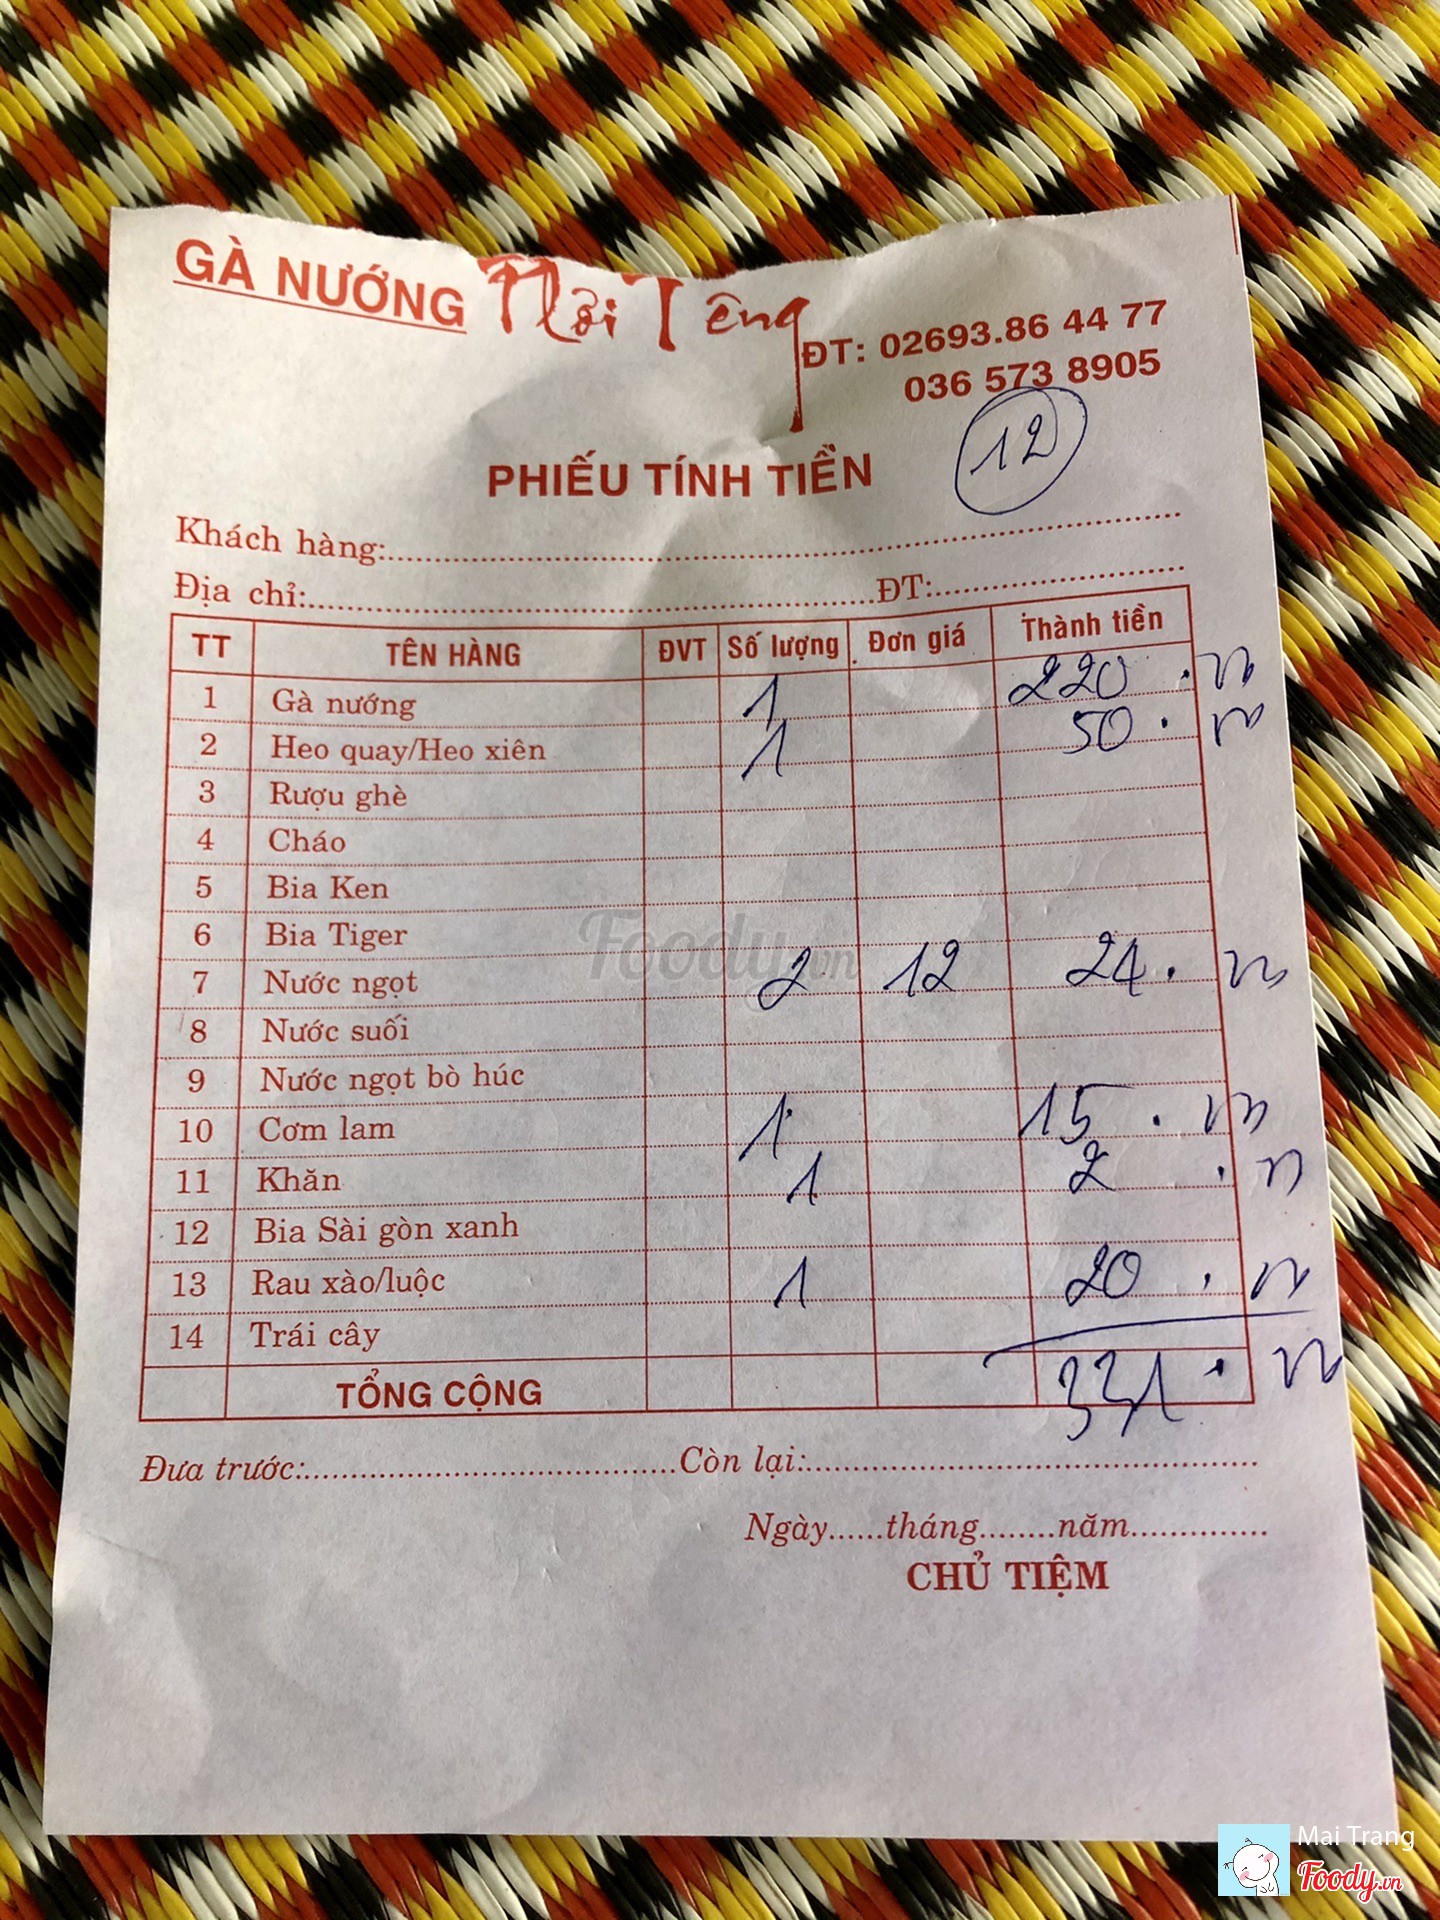 GÀ NƯỚNG
ĐT: 02693.86 44 77
036 573 8905
12
PHIẾU TÍNH TIỀN
Khách hàng:
Địa chỉ: ĐT:
TT TÊN HÀNG ĐVT Số lượng Đơn giá Thành tiền
1 Gà nướng 1 220
2 Heo quay/Heo xiên 1 50
3 Rượu ghè
4 Cháo
5 Bia Ken
6 Bia Tiger
7 Nước ngọt 2 12 24
8 Nước suối
9 Nước ngọt bò húc
10 Cơm lam 1 15
11 Khăn 1 2
12 Bia Sài gòn xanh
13 Rau xào/luộc 1 20
14 Trái cây
TỔNG CỘNG 331
Đưa trước: Còn lại:
Ngày......tháng........năm..............
CHỦ TIỆM
Foody.vn
Mai Trang
Foody.vn